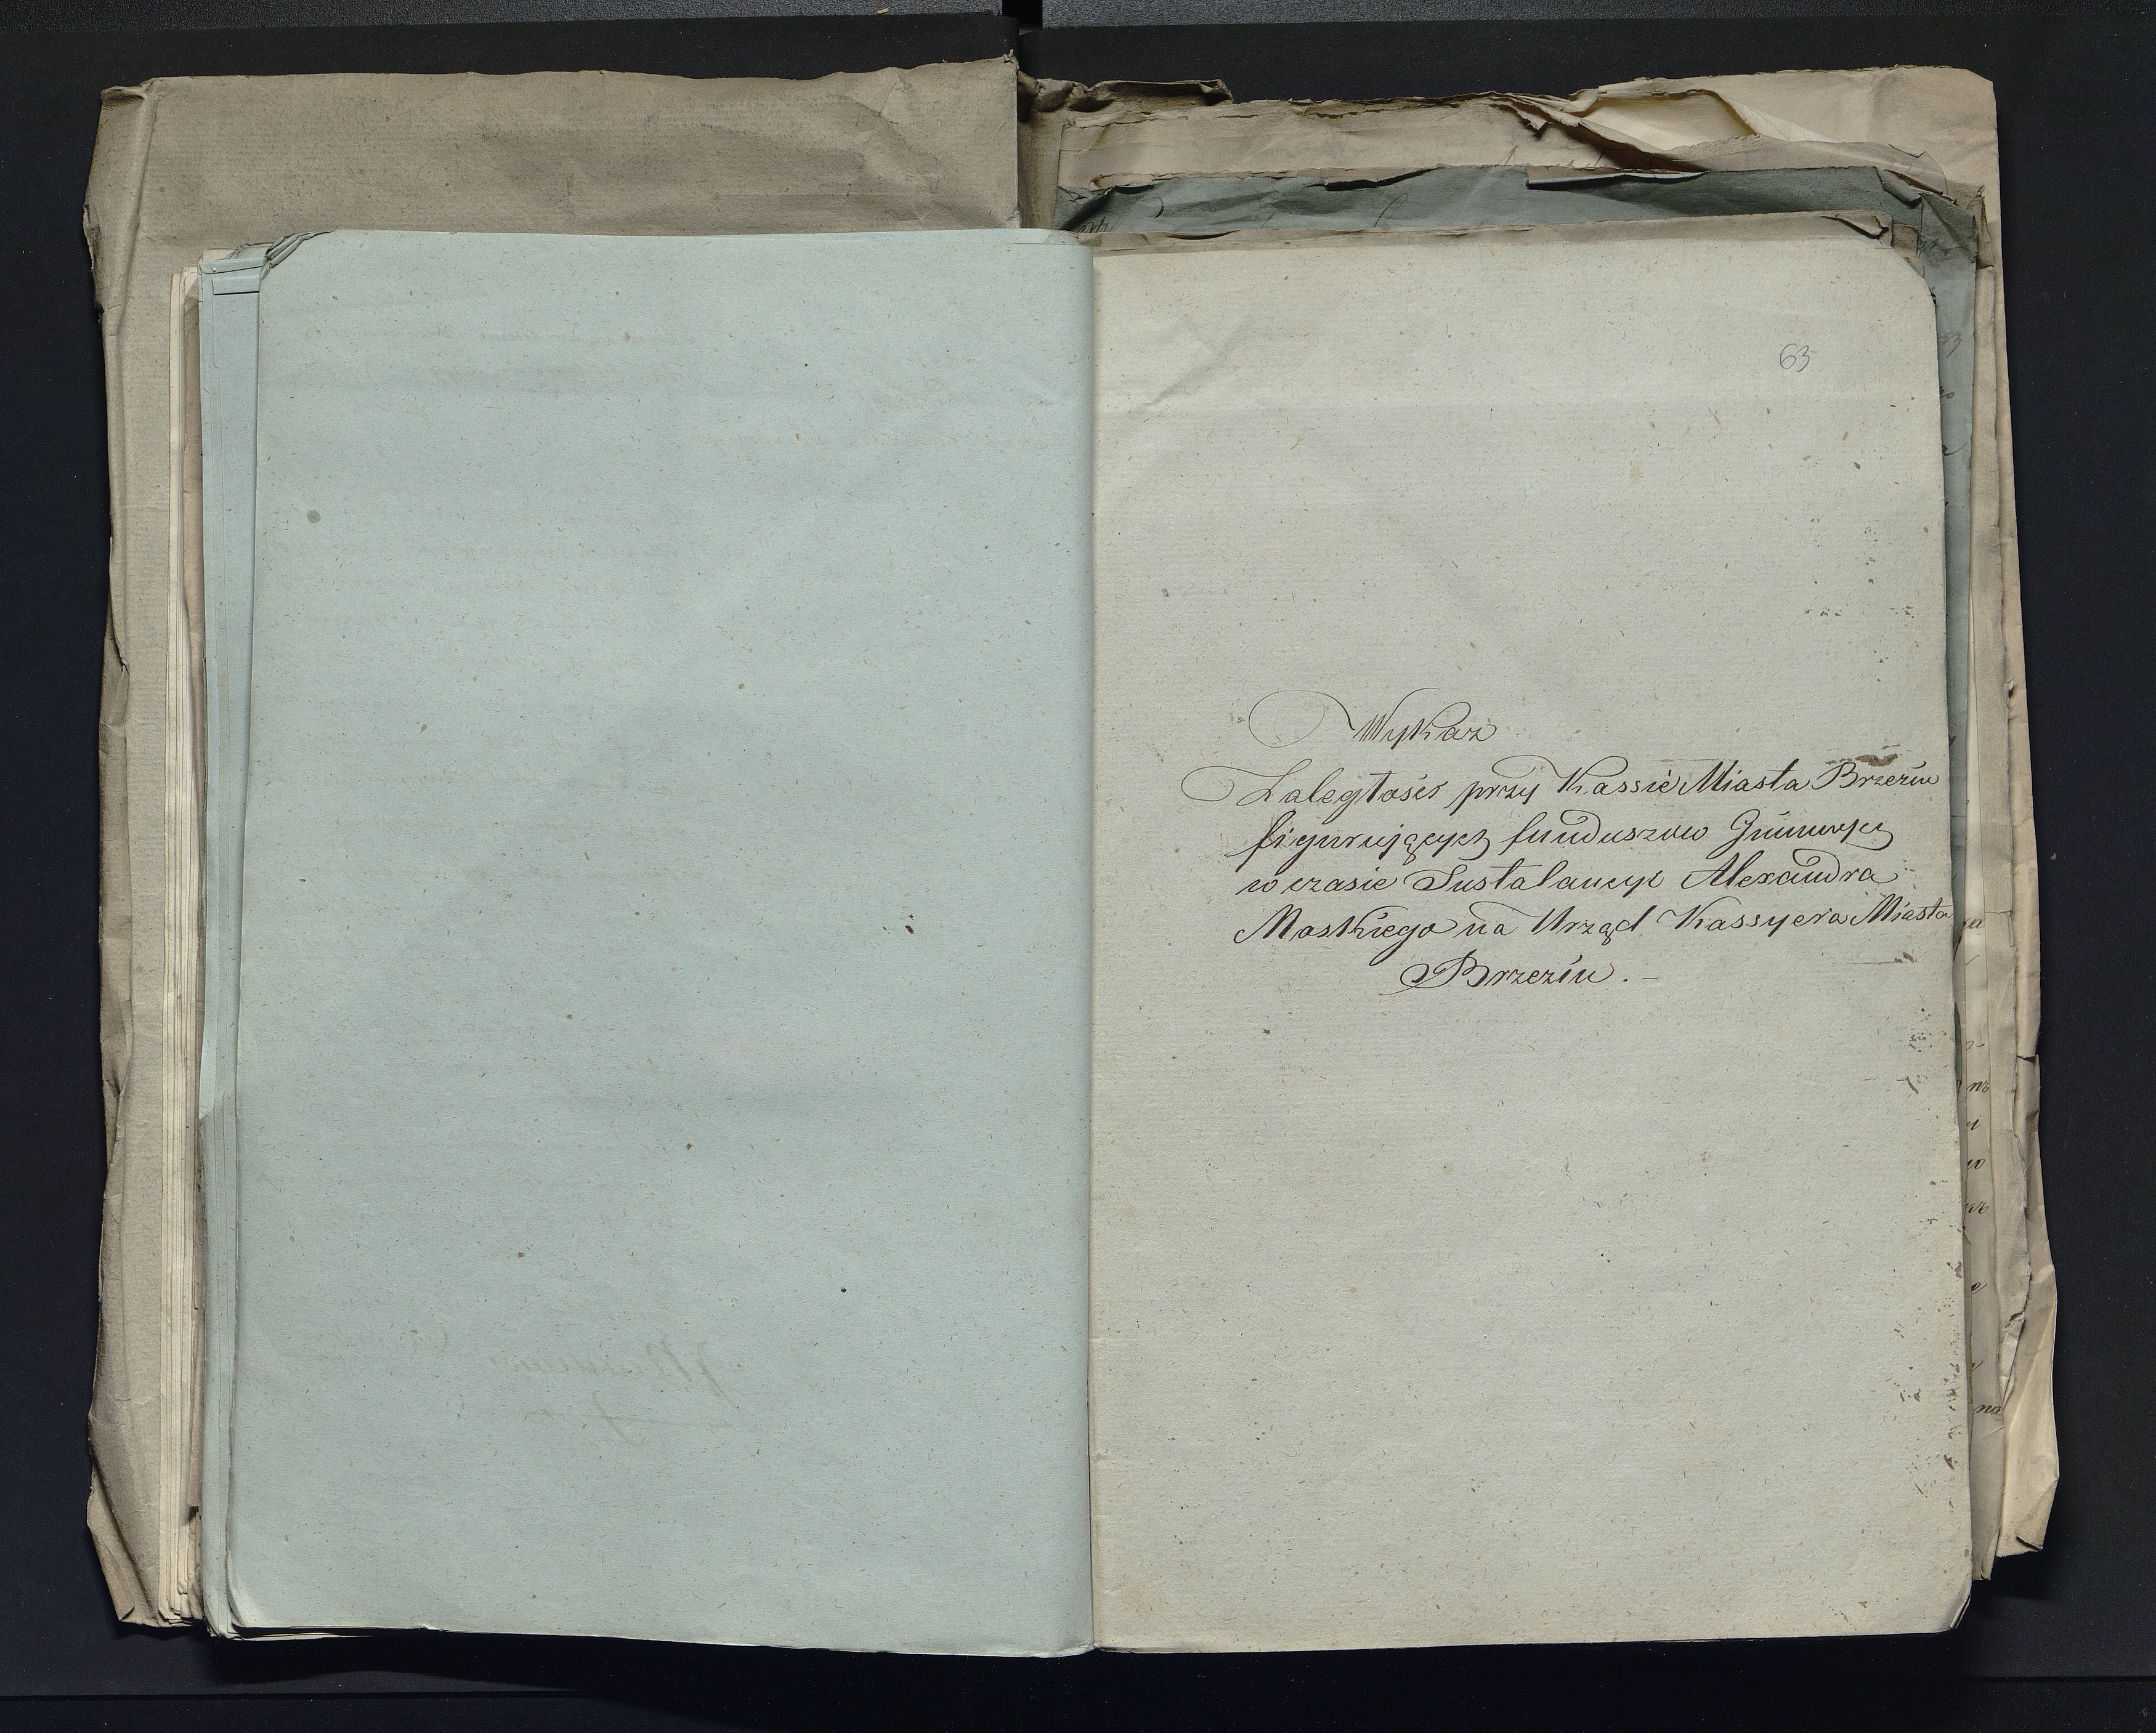 63
Wykaz
Zaległości przy Kassie Miasta Brzezin
figurujących funduszów Gminnych
w czasie Instalancyi Alexandra
Moskiego na Urząd Kassyera Miasta
Brzezin . –